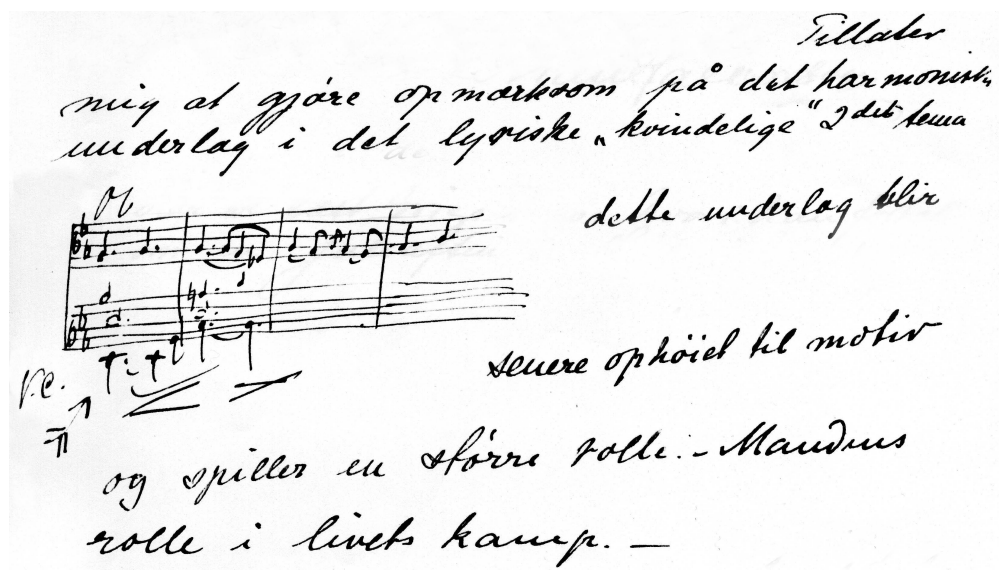 Tillater
mig at gjøre opmærksom på det harmoniske
underlag i det lyriske „kvindelige" 2det tema
Ob
dette underlag blir
senere ophöiet til motiv
Vc.
og spiller en större rolle. – Mandens
rolle i livets kamp. –